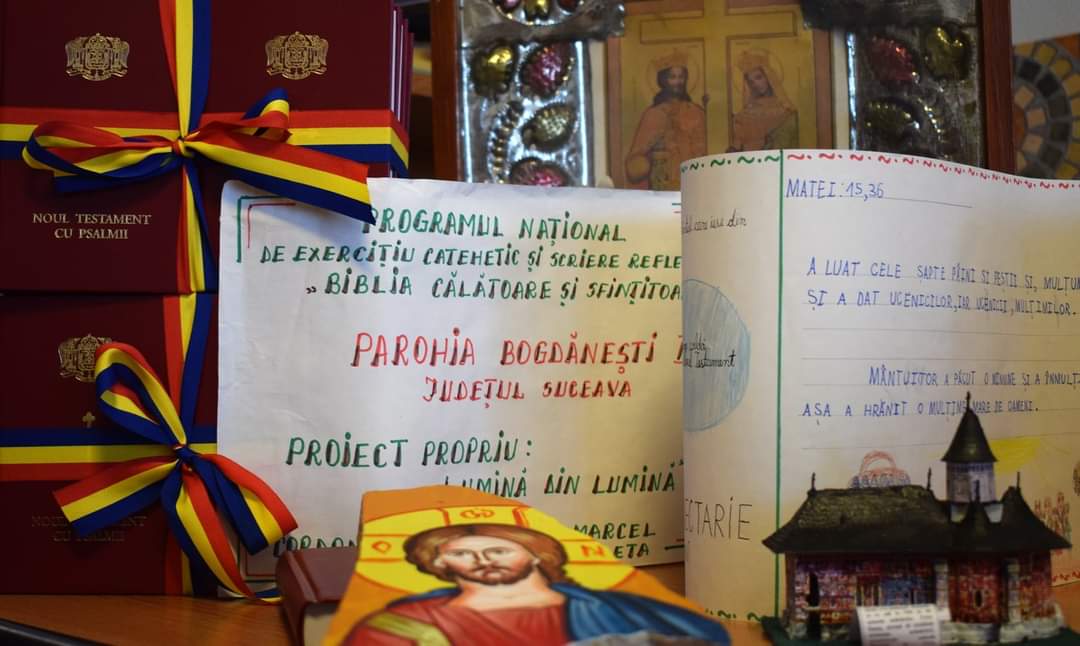 NOUL TESTAMENT
CU PSALMII
NOUL TESTAMENT
CU PSALMII
PROGRAMUL NAȚIONAL
DE EXERCIȚIU CATEHETIC ȘI SCRIERE REFLE
„ BIBLIA CĂLĂTOARE ȘI SFINȚITOA
PAROHIA BOGDĂNEȘTI
JUDEȚUL SUCEAVA
PROIECT PROPRIU:
LUMINĂ DIN LUMINĂ"
MARCEL
ETA
O
N
din
Testament
ECTARIE
MATEI: 15,36
A LUAT CELE ȘAPTE PÂINI ȘI PEȘTII ȘI, MULȚUM
ȘI A DAT UCENICILOR, IAR UCENICII, MULȚIMILOR.
MÂNTUITOR A FĂCUT O MINUNE ȘI A ÎNMULȚI
AȘA A HRĂNIT O MULȚIME MARE DE OAMENI.